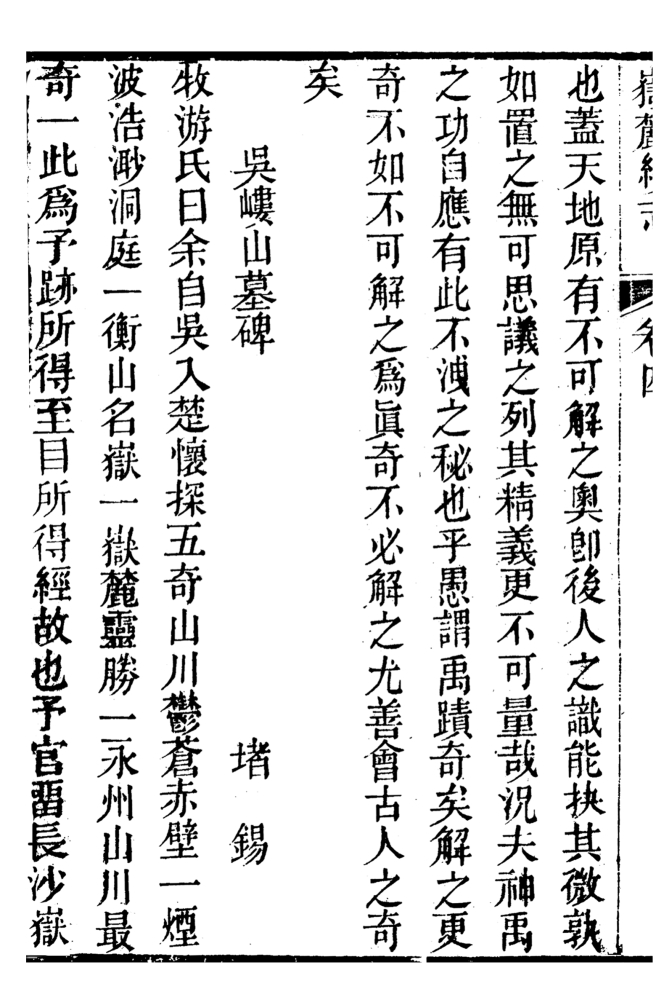 嶽麓續志 卷四
也蓋天地原有不可解之奧卽後人之識能抉其微孰
如置之無可思議之列其精義更不可量哉況夫神禹
之功自應有此不洩之秘也乎愚謂禹蹟奇矣解之更
奇不如不可解之爲眞奇不必解之尤善會古人之奇
矣
吳嶁山墓碑 堵錫
牧游氏曰余自吳入楚懷探五奇山川鬱蒼赤壁一煙
波浩渺洞庭一衡山名嶽一嶽麓靈勝一永州山川最
奇一此爲予跡所得至目所得經故也予官畱長沙嶽